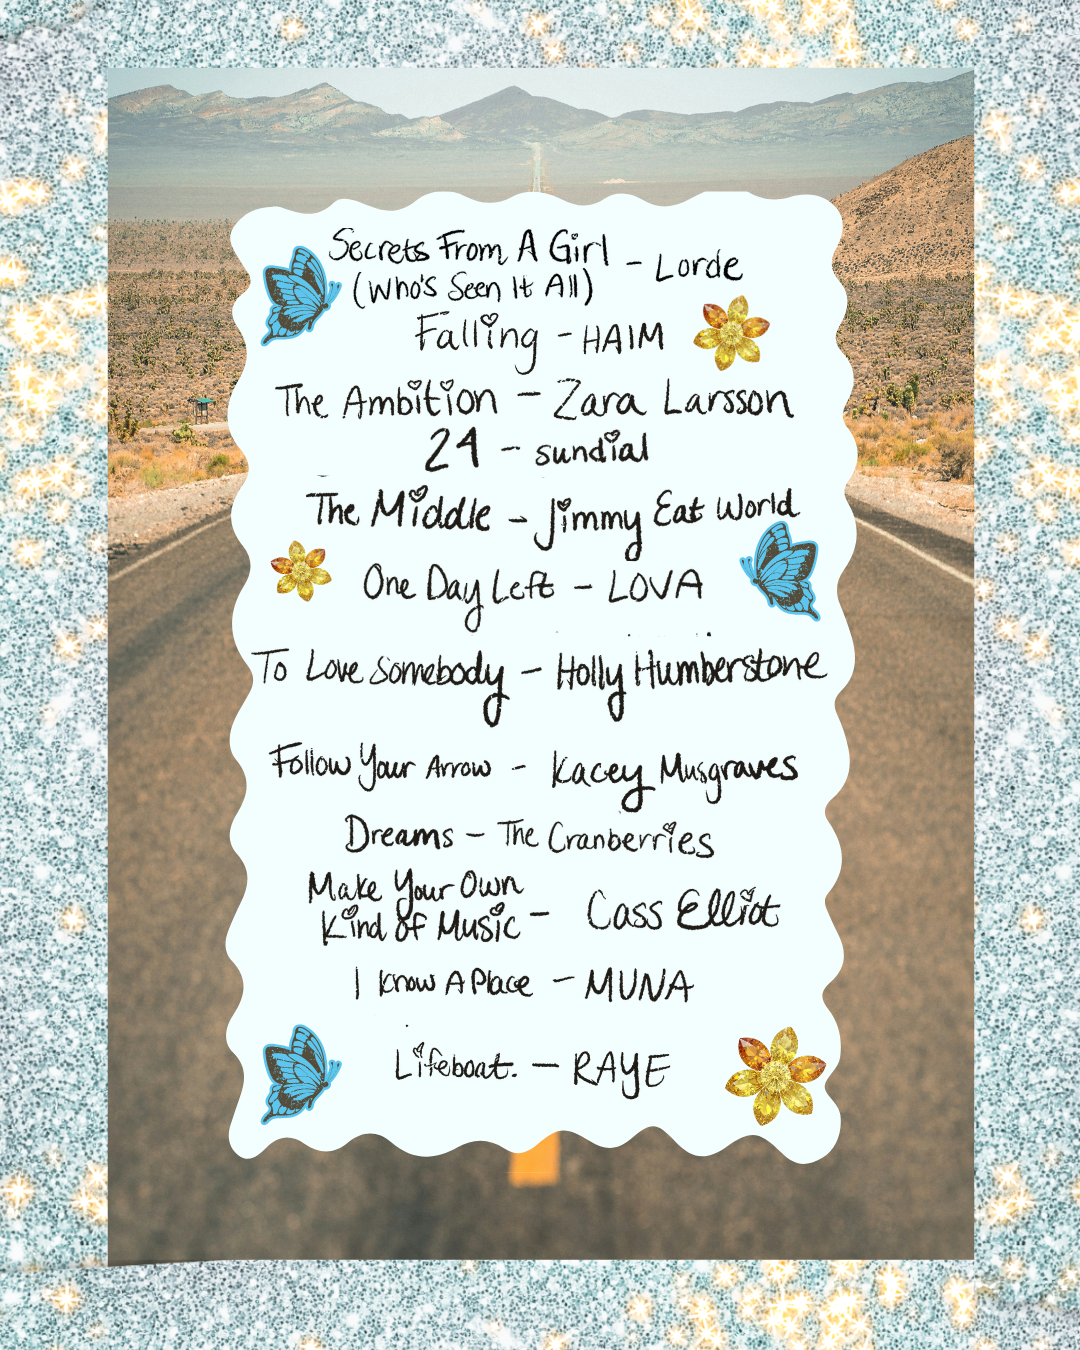 Secrets From A Girl
(Who's Seen It All) - Lorde
Falling - HAIM
The Ambition - Zara Larsson
24 - sundial
The Middle - Jimmy Eat World
One Day Left - LOVA
To Love Somebody - Holly Humberstone
Follow Your Arrow - Kacey Musgraves
Dreams - The Cranberries
Make Your Own
Kind of Music - Cass Elliot
I Know A Place - MUNA
Lifeboat. - RAYE